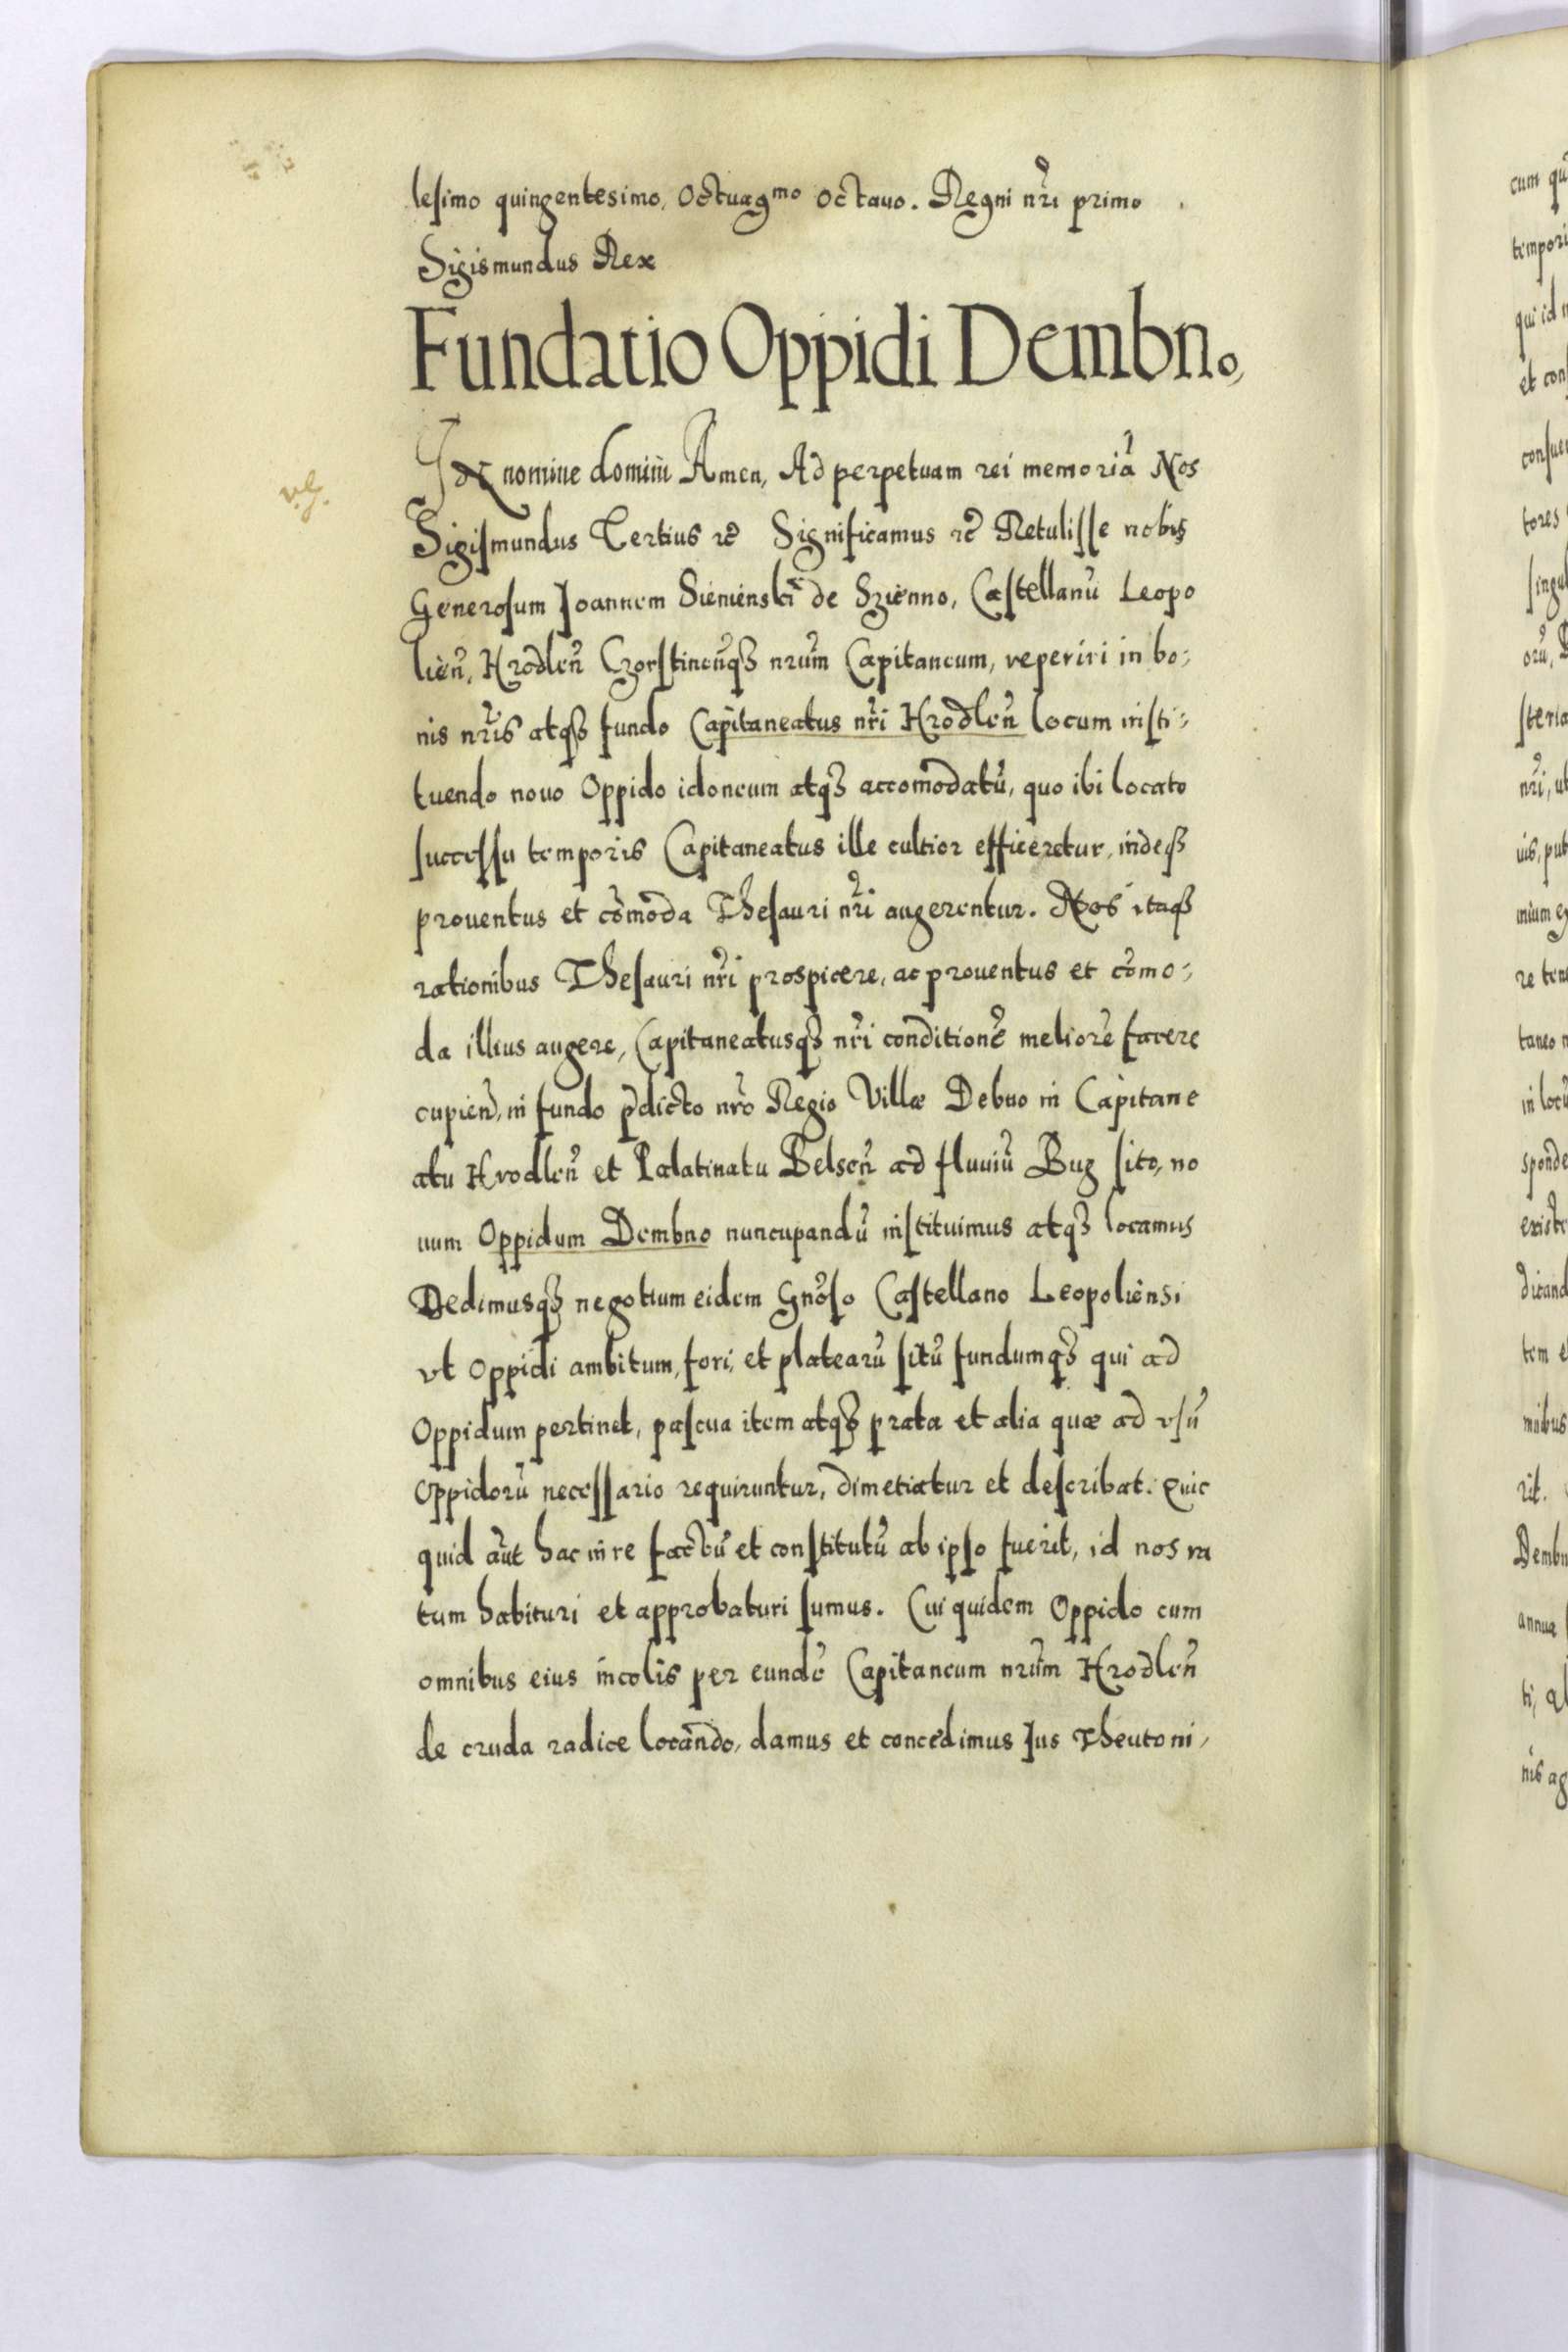 lesimo quingentesimo, Octuagmo octauo. Regni nr̃i primo.
Sigismundus Rex
Fundatio Oppidi Dembno,
In nomine domini Amen, Ad perpetuam rei memoriã Nos
Sigismundus Tertius &c̃ Significamus &c̃ Retulisse nobis
Generosum Joannem Sienienskĩ de Szienno, Castellanũ Leopo
lieñ, Hrodleñ Czorstineñqȝ nrũm Capitaneum, reperiri in bo:
nis nr̃is atqȝ fundo Capitaneatus nr̃i Hrodleñ locum insti:
tuendo nouo Oppido idoneum atqȝ accomodatũ, quo ibi locato
successu temporis Capitaneatus ille cultior efficeretur, indeqȝ
prouentus et cõmoda Thesauri nr̃i augerentur. Nos itaqȝ
rationibus Thesauri nr̃i prospicere, ac prouentus et cõmo:
da illius augere, Capitaneatusqȝ nr̃i conditionẽ meliorẽ facere
cupieñ, in fundo p̃dicto nr̃o Regio Villæ Debno in Capitane
atu Hrodleñ et Palatinatu Belseñ ad fluuiũ Bug sito, no
uum Oppidum Dembno nuncupandũ instituimus atqȝ locamus
Dedimusqȝ negotium eidem Gnõso Castellano Leopoliensi
vt Oppidi ambitum, fori, et platearũ sitũ fundumqȝ qui ad
Oppidum pertinet, pascua item atqȝ prata et alia quæ ad vsũ
Oppidorũ necessario requiruntur, dimetiatur et describat. Quic
quid aũt hac in re factũ et constitutũ ab ipso fuerit, id nos ra
tum habituri et approbaturi sumus. Cui quidem Oppido cum
omnibus eius incolis per eundẽ Capitaneum nrũm Hrodleñ
de cruda radice locando, damus et concedimus Jus Theutoni,